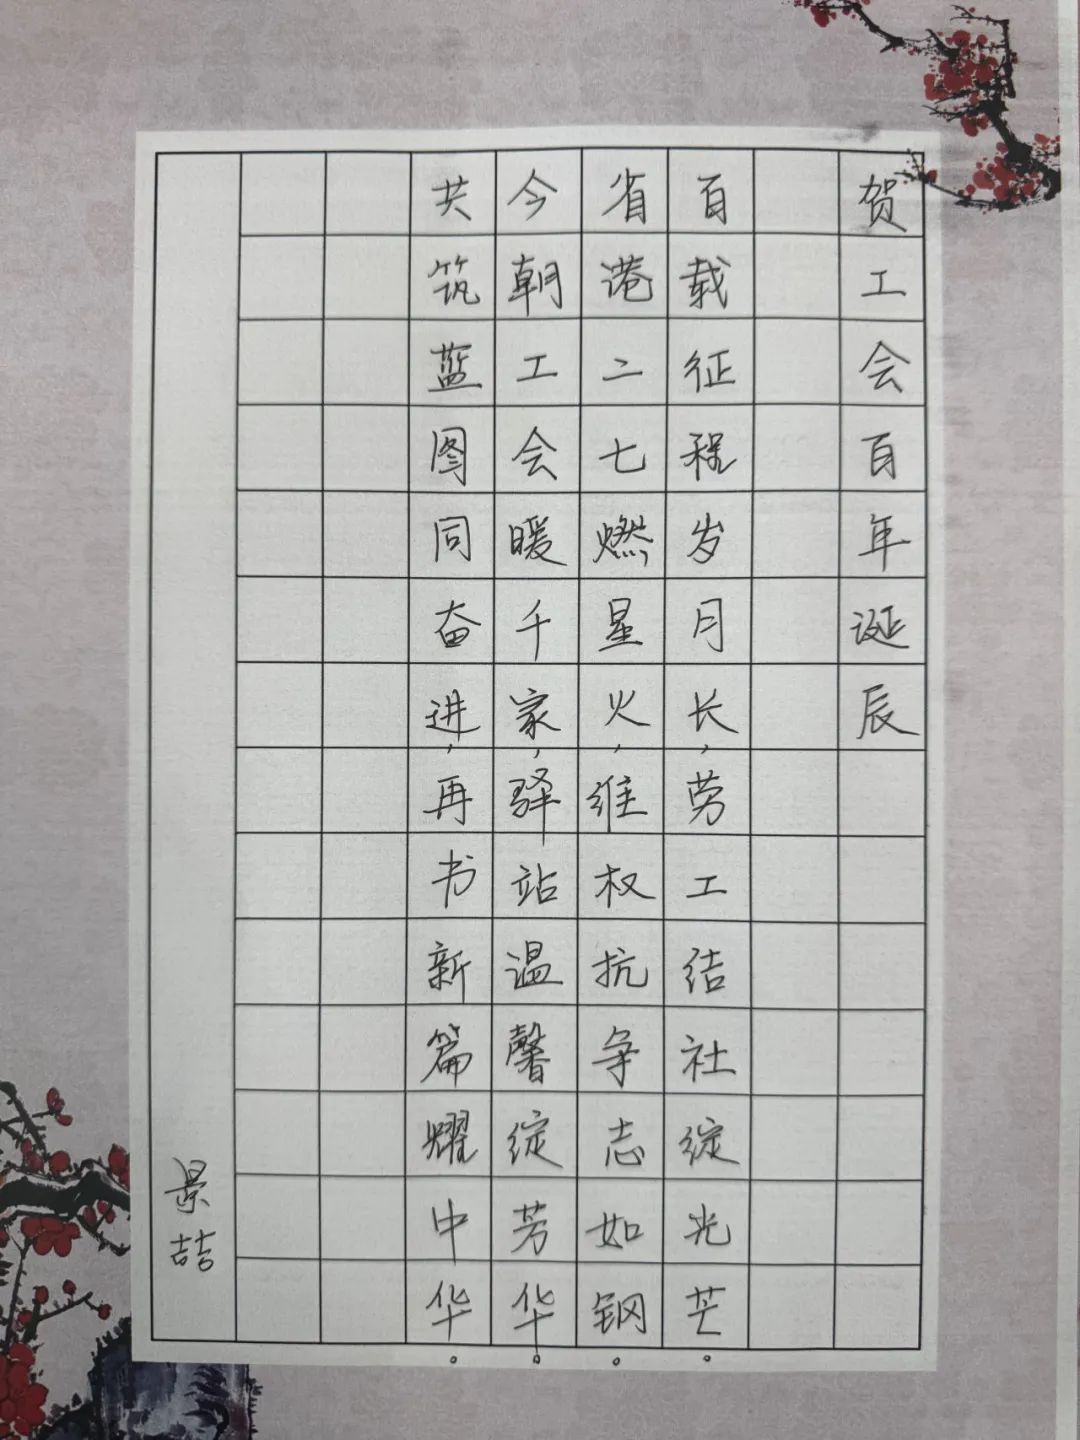 贺工会百年诞辰
百载征程岁月长，劳工结社绽光芒。
省港二七燃星火，维权抗争志如钢。
今朝工会暖千家，驿站温馨绽芳华。
共筑蓝图同奋进，再书新篇耀中华。
景喆